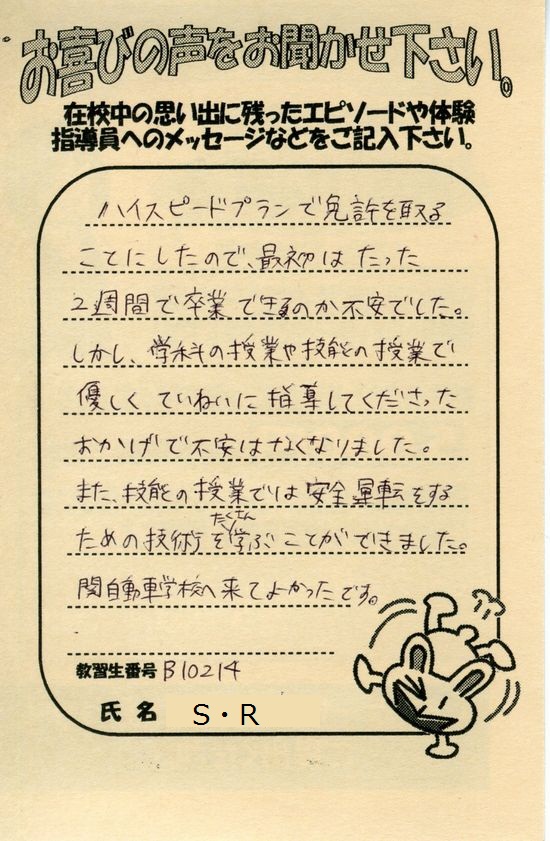 お喜びの声をお聞かせ下さい。
在校中の思い出に残ったエピソードや体験
指導員へのメッセージなどをご記入下さい。
ハイスピードプランで免許を取る
ことにしたので、最初は たった
2週間で卒業できるのか不安でした。
しかし、学科の授業や技能の授業で
優しく ていねいに 指導してくださった
おかげで不安はなくなりました。
また、技能の授業では安全運転をする
たくさん
ための技術を学ぶことができました。
関自動車学校へ来てよかったです。
教習生番号 B10214
氏名 S・R